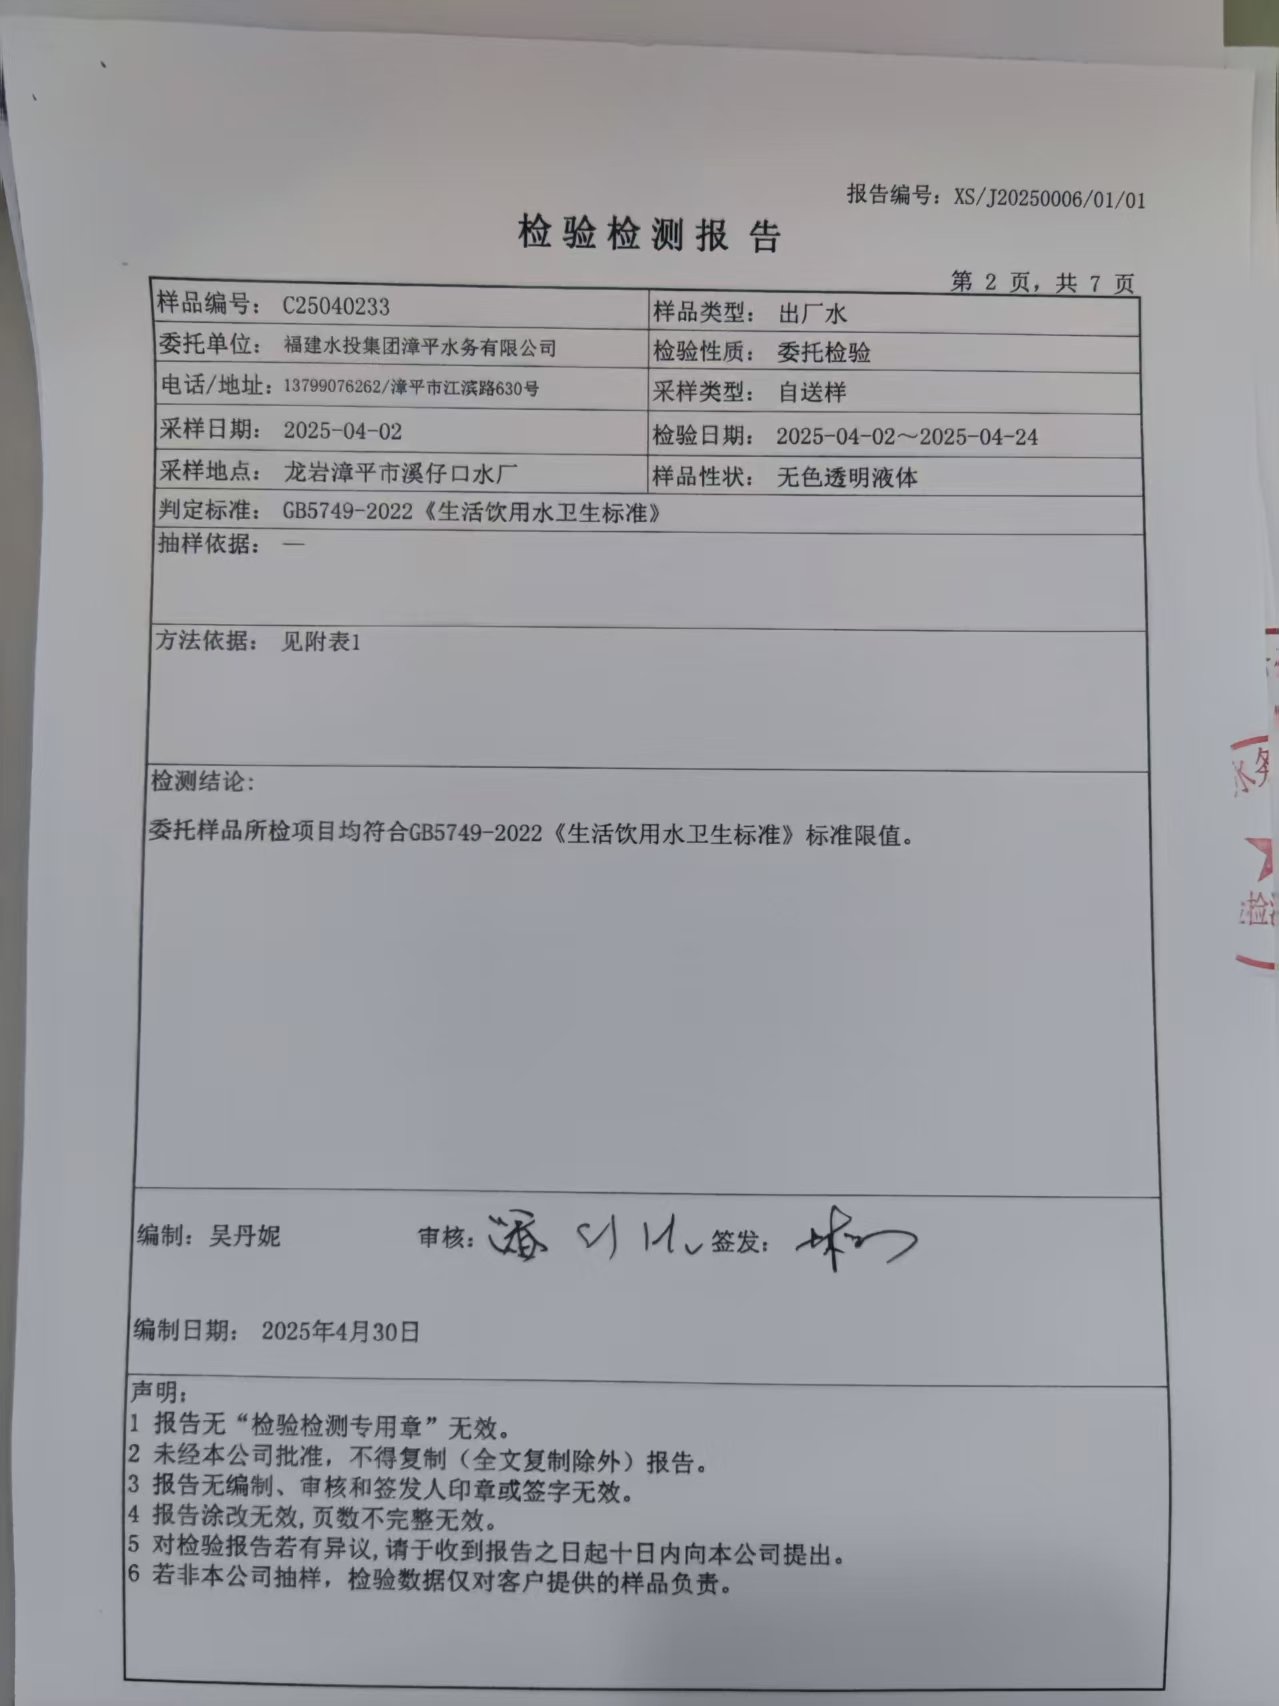 报告编号：XS/J20250006/01/01
检验检测报告
第 2 页，共 7 页
样品编号： C25040233 样品类型： 出厂水
委托单位： 福建水投集团漳平水务有限公司 检验性质： 委托检验
电话/地址：13799076262/漳平市江滨路630号 采样类型： 自送样
采样日期： 2025-04-02 检验日期： 2025-04-02～2025-04-24
采样地点： 龙岩漳平市溪仔口水厂 样品性状： 无色透明液体
判定标准： GB5749-2022《生活饮用水卫生标准》
抽样依据： —
方法依据： 见附表1
检测结论：
委托样品所检项目均符合GB5749-2022《生活饮用水卫生标准》标准限值。
编制：吴丹妮 审核： 签发：
编制日期： 2025年4月30日
声明：
1 报告无“检验检测专用章”无效。
2 未经本公司批准，不得复制（全文复制除外）报告。
3 报告无编制、审核和签发人印章或签字无效。
4 报告涂改无效,页数不完整无效。
5 对检验报告若有异议,请于收到报告之日起十日内向本公司提出。
6 若非本公司抽样，检验数据仅对客户提供的样品负责。